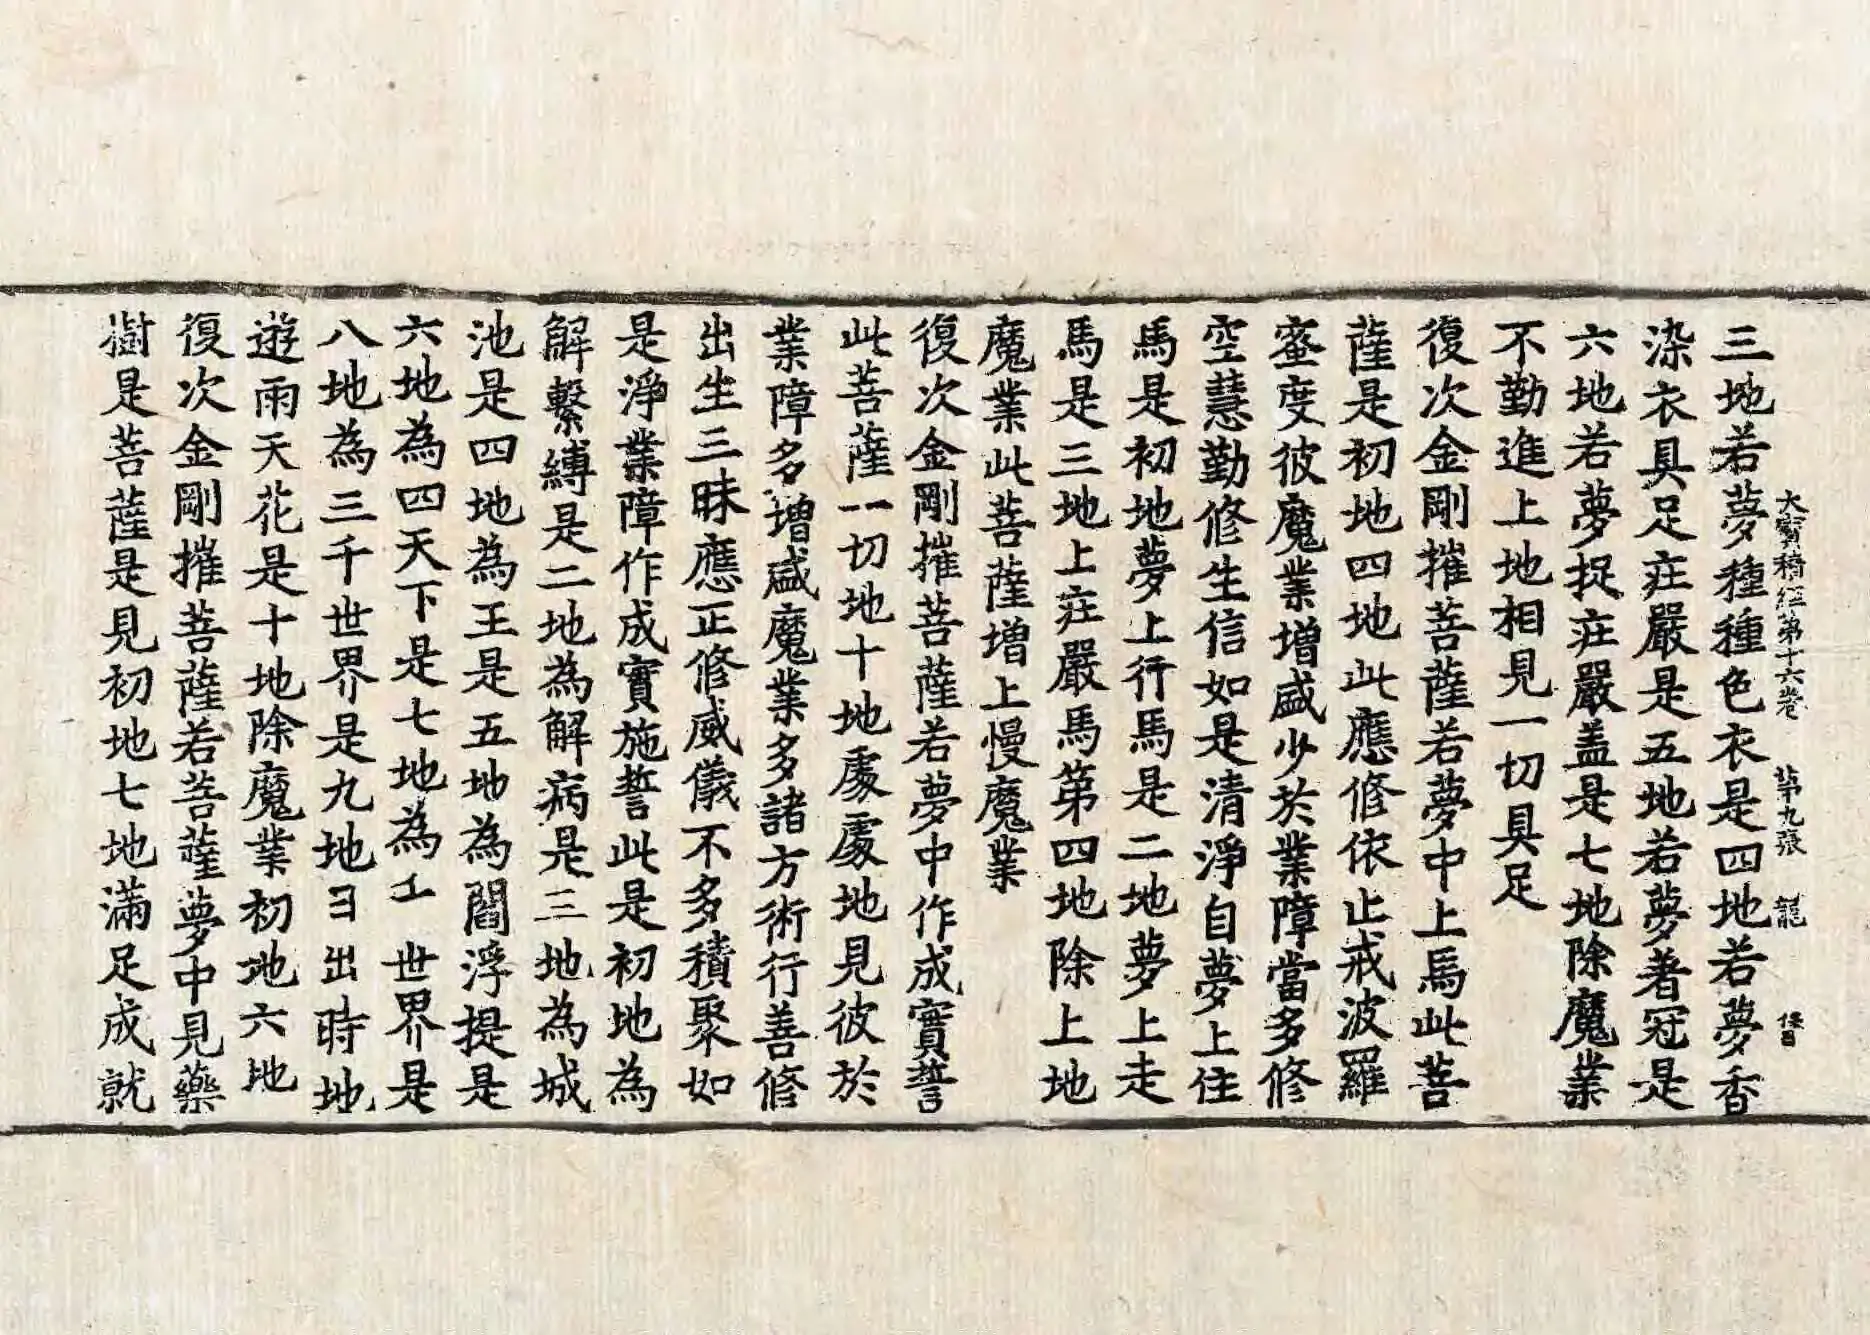 大寶積經第十六卷 第九張 龍
三地若夢種種色衣是四地若夢香
染衣具足庄嚴是五地若夢著冠是
六地若夢捉庄嚴盖是七地除魔業
不勤進上地相見一切具足
復次金剛摧菩薩若夢中上馬此菩
薩是初地四地此應修依止戒波羅
蜜度彼魔業增盛少於業障當多修
空慧勤修生信如是清淨自夢上住
馬是初地夢上行馬是二地夢上走
馬是三地上庄嚴馬第四地除上地
魔業此菩薩增上慢魔業
復次金剛摧菩薩若夢中作成實誓
此菩薩一切地十地處處地見彼於
業障多增盛魔業多諸方術行善修
出生三昧應正修威儀不多積聚如
是淨業障作成實施誓此是初地為
解繫縛是二地為解病是三地為城
池是四地為王是五地為閻浮提是
六地為四天下是七地為 世界是
八地為三千世界是九地 出時地
遊雨天花是十地除魔業初地六地
復次金剛摧菩薩若菩薩夢中見藥
樹是菩薩是見初地七地滿足成就